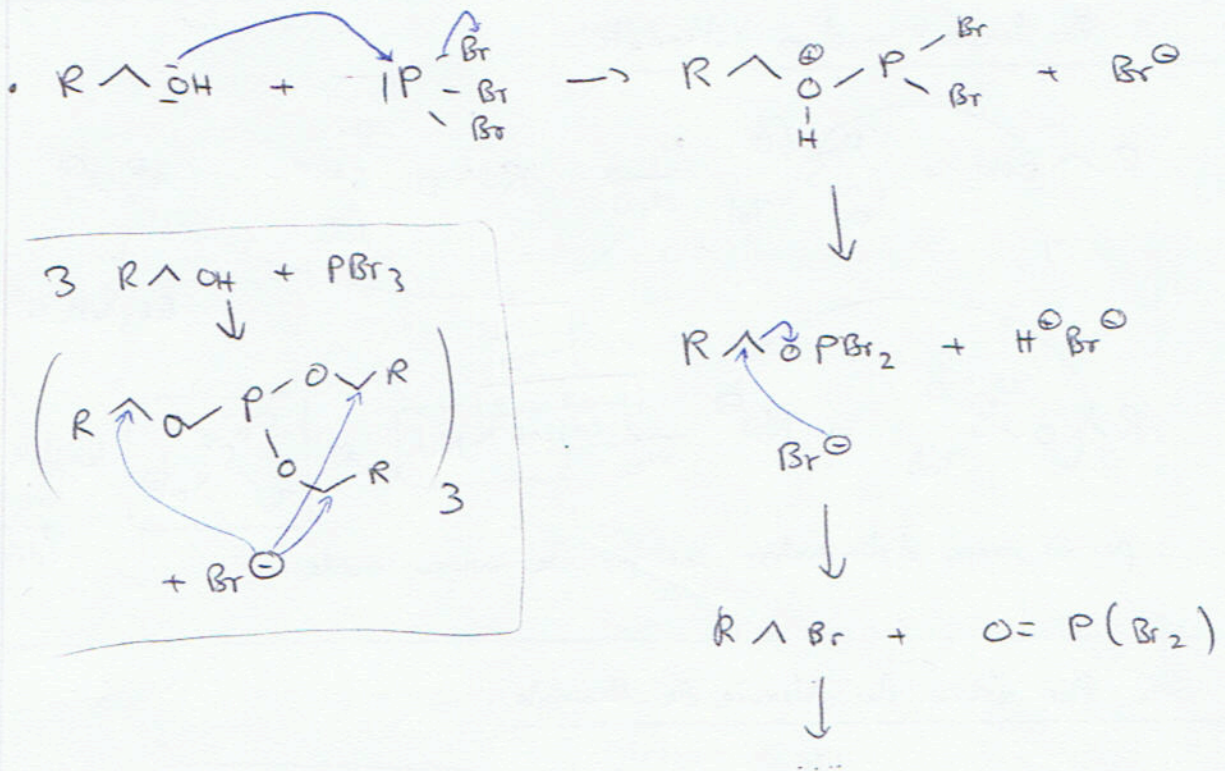 · R ∧ OH + |P - Br - Br - Br → R ∧ O⊕ - P - Br - Br + Br⊖
H
R ∧ O PBr₂ + H⊕ Br⊖
Br⊖
R ∧ Br + O= P(Br₂)
....
3 R ∧ OH + PBr₃
( R ∧ O - P - O ∨ R
O ∨ R ) 3
+ Br⊖